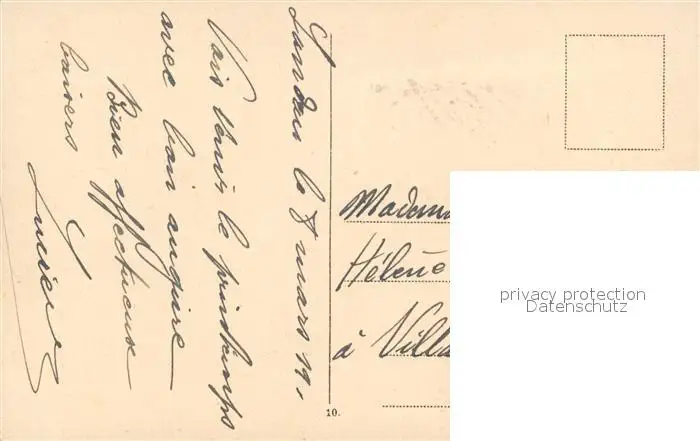 Landau le 8 mars 19,
Vois venir le printemps
avec bon augure
Bien affectueux
baisers
Lucien
Madem
Hélène
à Villa
10.
privacy protection
Datenschutz